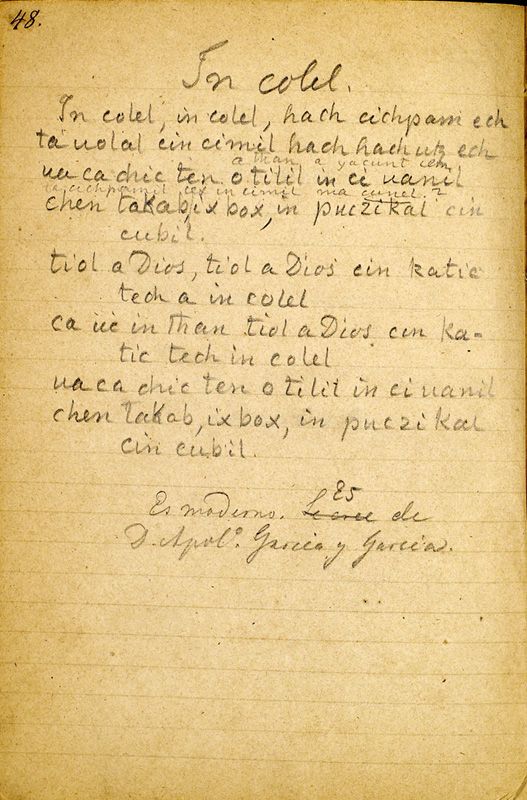 48.
In colel.
In colel, in colel, hach cichpam ech
ta uolal cin cimil hach hach utz ech
a than, a yacunt cen
ua ca chic ten o tilil in ci uanil
ta cichpamil cex in cimil ma cunel?
chen takab, ix box, in puczikal cin
cubil.
tiol a Dios, tiol a Dios cin katic
tech a in colel
ca ŭé in than tiol a Dios cin ka-
tic tech in colel
ua ca chic ten o tilil in ci uanil
chen takab, ix box, in puczikal
cin cubil.
Es
Es moderno. Se cree de
D. Apolo. Garcia y Garcia.